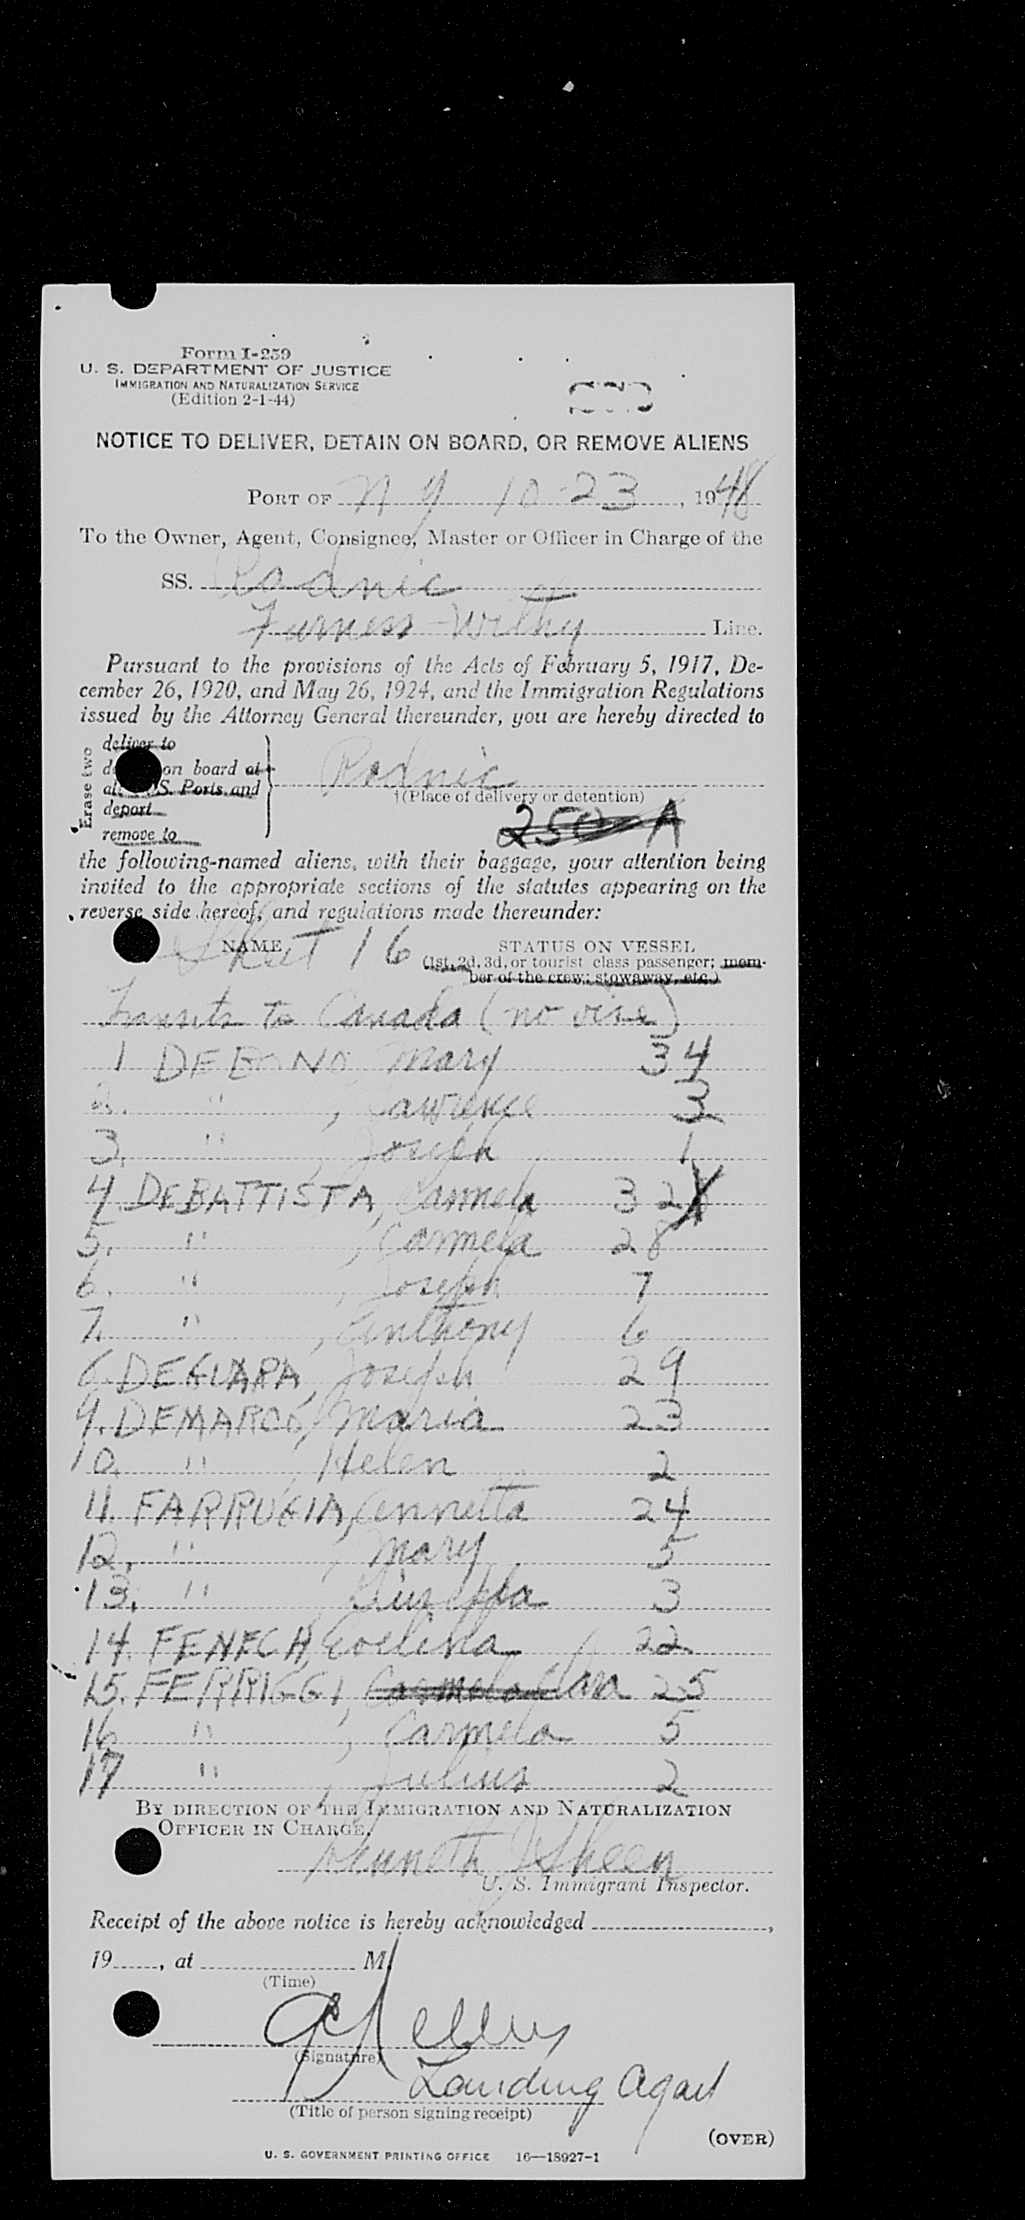 Form I-259
U. S. DEPARTMENT OF JUSTICE
IMMIGRATION AND NATURALIZATION SERVICE
(Edition 2-1-44)
NOTICE TO DELIVER, DETAIN ON BOARD, OR REMOVE ALIENS
PORT OF N Y 10-23, 1948
To the Owner, Agent, Consignee, Master or Officer in Charge of the
SS. Rodnic
Furness-Withy Line.
Pursuant to the provisions of the Acts of February 5, 1917, De-
cember 26, 1920, and May 26, 1924, and the Immigration Regulations
issued by the Attorney General thereunder, you are hereby directed to
Erase two
deliver to
on board at
S. Ports and
deport
remove to
Rodnic
†(Place of delivery or detention)
250 A
the following-named aliens, with their baggage, your attention being
invited to the appropriate sections of the statutes appearing on the
reverse side hereof, and regulations made thereunder:
NAME Sheet 16 STATUS ON VESSEL
(1st, 2d, 3d, or tourist class passenger; mem-
ber of the crew; stowaway, etc.)
Transits to Canada (no vise)
1 DEBONO Mary 34
2. " , Lawrence 3
3. " , Joseph 1
4. DEBATTISTA, Carmela 32
5. " , Carmela 28
6. " , Joseph 7
7. " , Anthony 6
8. DEGIARA, Joseph 29
9. DEMARCO, Maria 23
10. " , Helen 2
11. FARRUGIA, Annetta 24
12. " , Mary 5
13. " Giuseppa 3
14. FENECH, Evelina 22
15. FERRIGGI, Carmela Clara 25
16. " , Carmela 5
17 " , Julius 2
BY DIRECTION OF THE IMMIGRATION AND NATURALIZATION
OFFICER IN CHARGE.
Kenneth J Sheen
U. S. Immigrant Inspector.
Receipt of the above notice is hereby acknowledged ,
19 , at M.
(Time)
(Signature)
Landing Agent
(Title of person signing receipt)
(OVER)
U. S. GOVERNMENT PRINTING OFFICE 16—18927-1